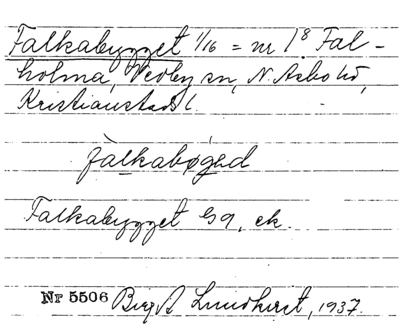 Falkabygget 1/16 = nr 1⁸ Fal-
holma, Verby sn, N. Åsbo hd,
Kristianstads l.
fàlkabøgəd
Falkabygget Gg, ek.
Nr 5506 Birgit Lundkvist, 1937.